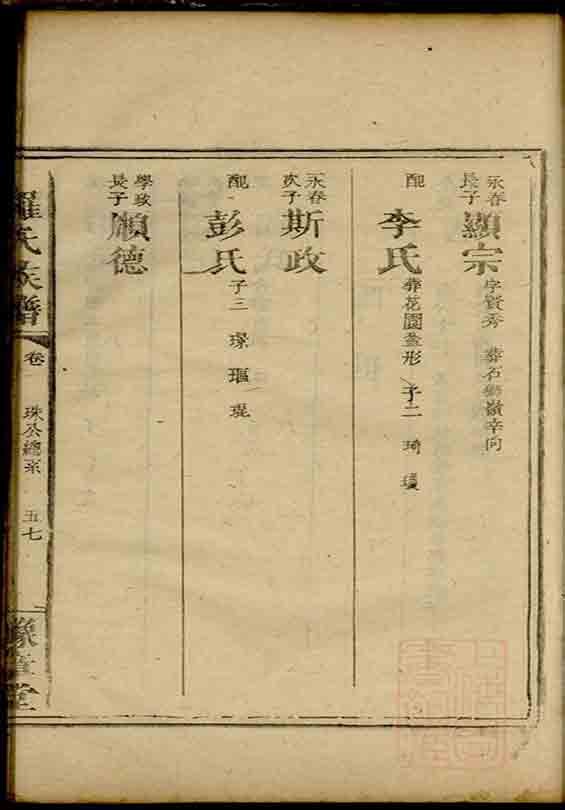 永春長子 顯宗 字賢秀 葬石獅嶺辛向
配 李氏 葬花園形 子二 琦
永春次子 斯政
配 彭氏 子三 琛 琨
學政長子 順德
羅氏族譜 卷 珠公總系 五七 豫章堂